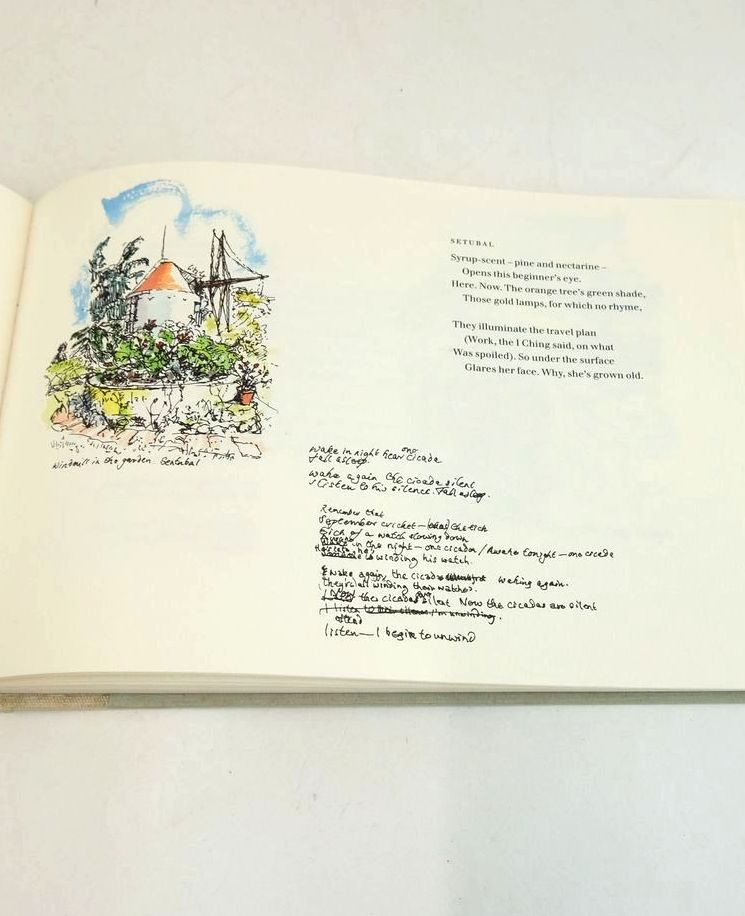 Windmill in the garden. Setubal
SETUBAL
Syrup-scent – pine and nectarine –
Opens this beginner's eye.
Here. Now. The orange tree's green shade,
Those gold lamps, for which no rhyme,
They illuminate the travel plan
(Work, the I Ching said, on what
Was spoiled). So under the surface
Glares her face. Why, she's grown old.
Wake in night hear one cicada
Fall asleep.
wake again the cicada silent
listen to his silence. Fall asleep.
Remember that
September cricket – the tick
Sick of a watch slowing down
in the night – one cicada / Awake tonight – one cicada
winding his watch.
wake again, the cicada waking again.
They're all winding their watches.
the cicadas silent Now the cicadas are silent
I listen to I'm unwinding.
listen – I begin to unwind